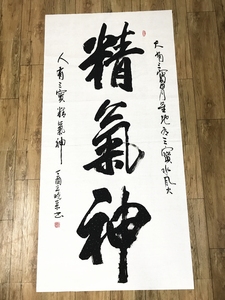 天有三寳日月星地有三寳水風火
精氣神
人有三寳精氣神
丁酉